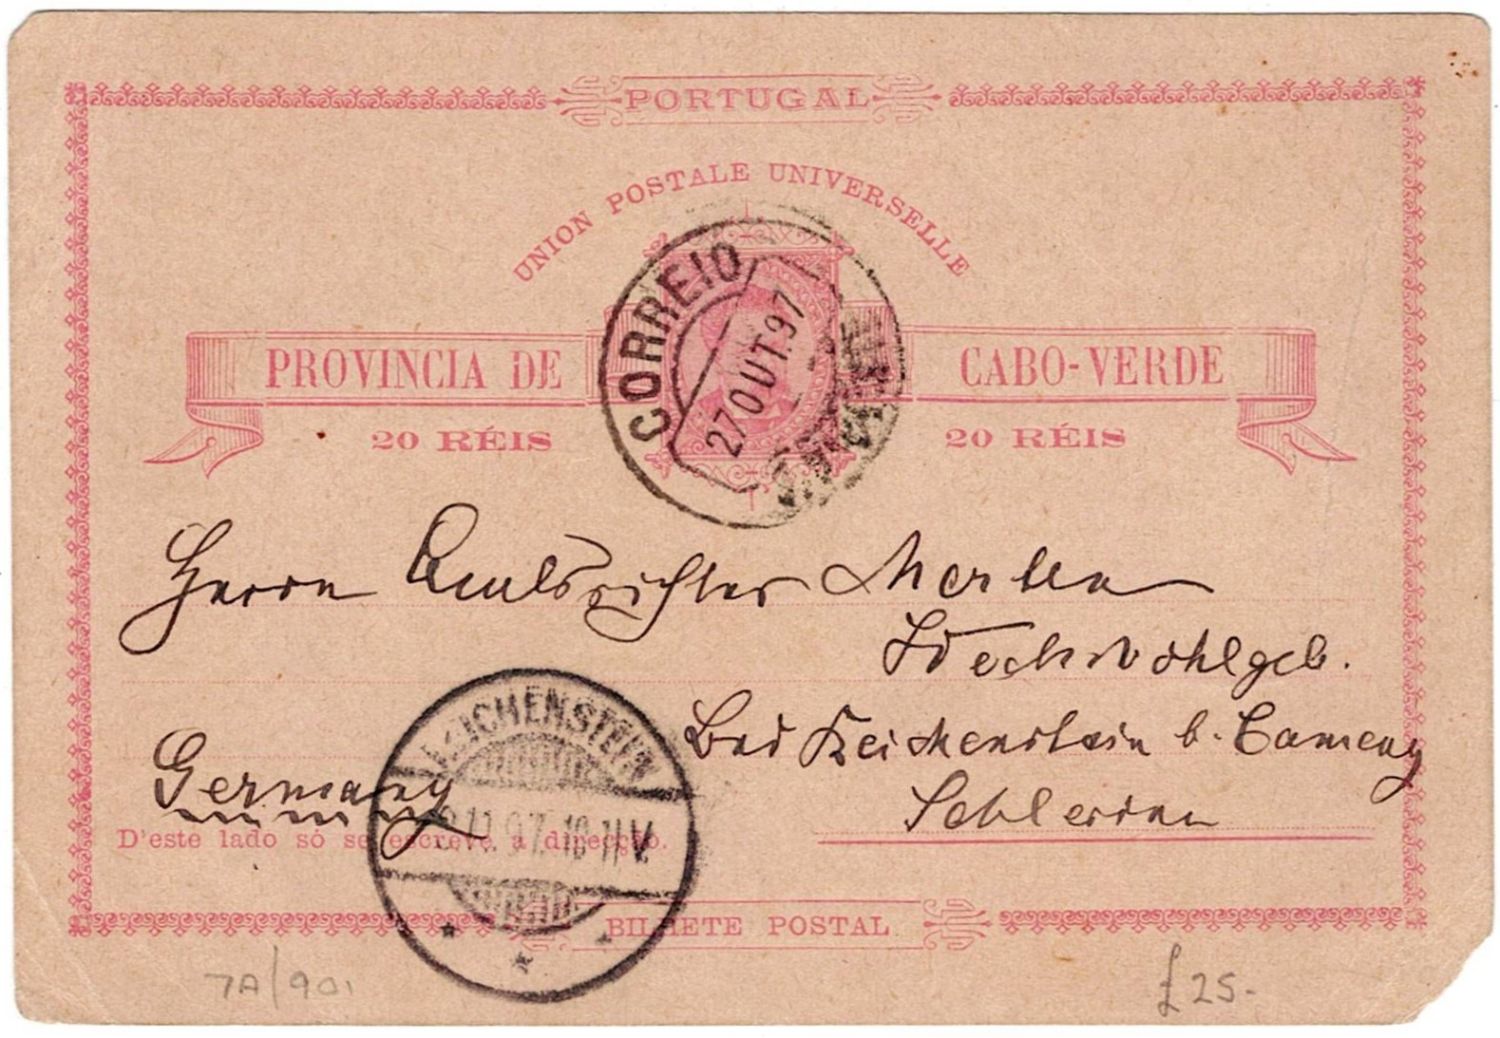 PORTUGAL
UNION POSTALE UNIVERSELLE
CORREIO
27 OUT. 97
PROVINCIA DE CABO-VERDE
20 RÉIS 20 RÉIS
Herrn Amtsrichter
Hochwohlgeb.
Bad Reichenstein b. Camenz
Schlesien
Germany
REICHENSTEIN
11. 97. 10-11 V.
D'este lado só se escreve a direcção.
BILHETE POSTAL
7A/901
£25-